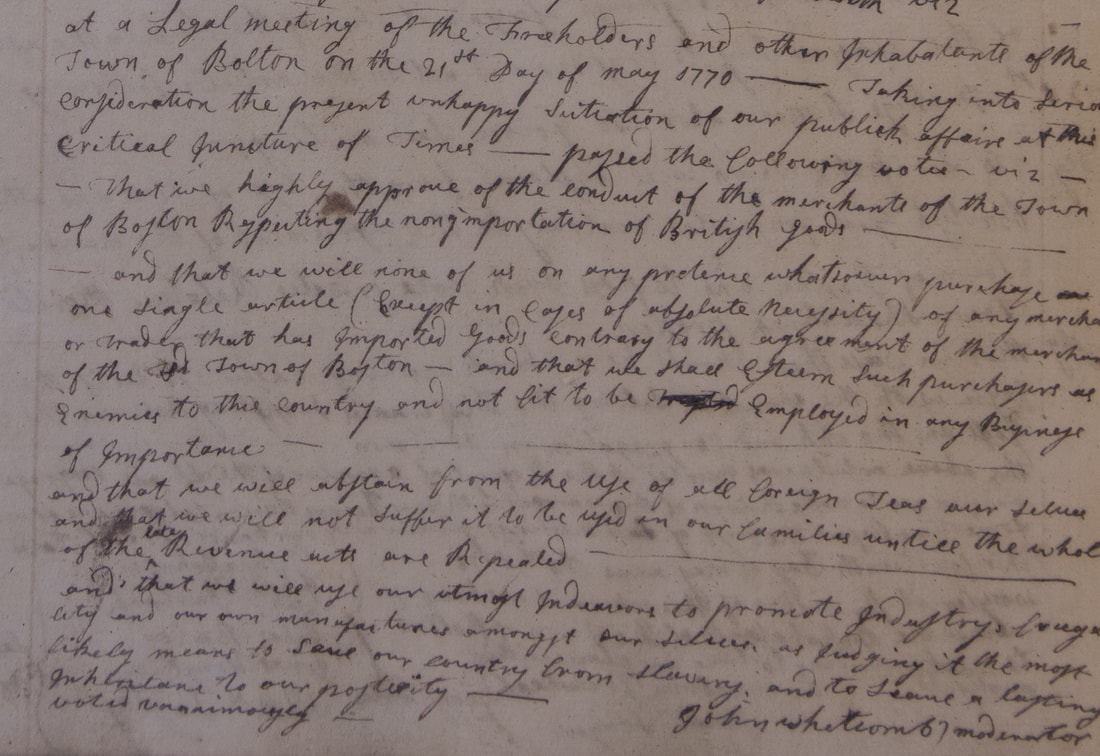 viz
at a Legal meeting of the Freeholders and other Inhabatants of the
Town of Bolton on the 21st Day of may 1770 — Taking into Serio
Consideration the present unhappy Sutiation of our publick affairs at this
Critical Juncture of Times — passed the following votes – viz —
— that we highly approve of the conduct of the merchants of the Town
of Boston Respecting the nonimportation of British goods —
— and that we will none of us on any pretence whatsoever purchase
one Single article (Except in Cases of absolute necessity) of any mercha
or trader that has Imported Goods contrary to the agreement of the merchan
of the sd Town of Boston — and that we shall Esteem Such purchasers as
Enemies to this country and not fit to be Employed in any Business
of Importance —
and that we will abstain from the Use of all foreign Teas our selves
and that we will not Suffer it to be used in our families untill the whol
of the late Revenue acts are Repealed —
and that we will use our utmost Indeavors to promote Industry, fruga
lity and our own manufactures amongst our selves. as Judging it the most
likely means to Save our country from Slavery. and to Leave a lasting
Inheritance to our posterity —
voted unanimously — John whetcomb moderator